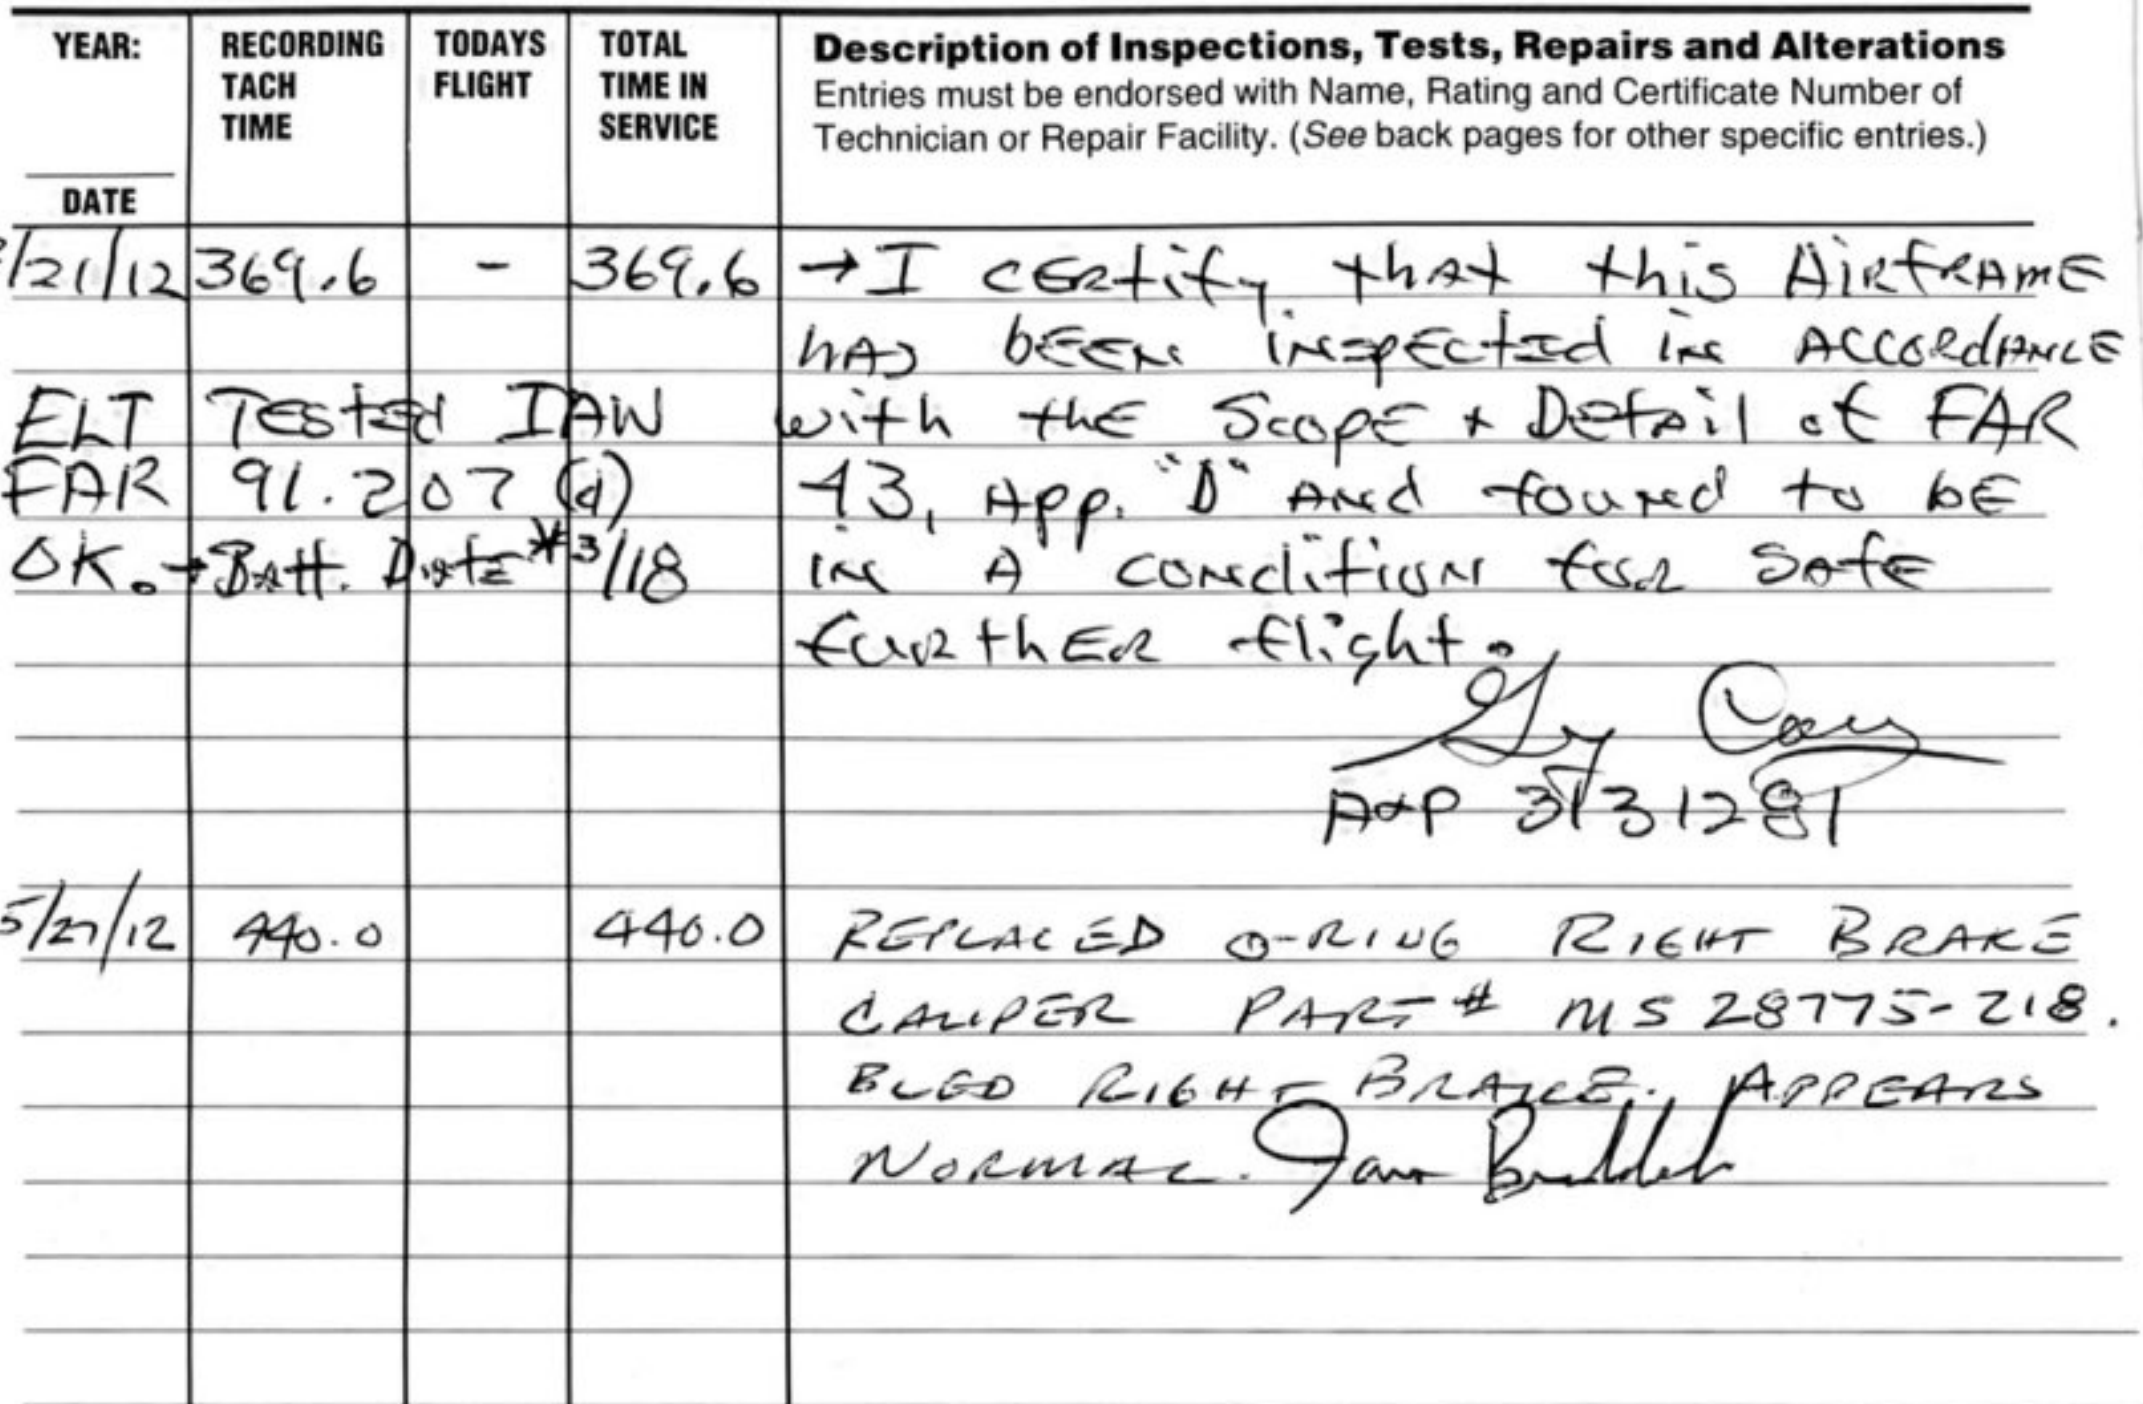 YEAR:
RECORDING TACH TIME
TODAYS FLIGHT
TOTAL TIME IN SERVICE
Description of Inspections, Tests, Repairs and Alterations
Entries must be endorsed with Name, Rating and Certificate Number of
Technician or Repair Facility. (See back pages for other specific entries.)
DATE
/21/12 369.6 - 369.6 →I CERtify that this AiRfRAME
hAS bEEN inspEctEd in ACCORdANCE
with thE ScopE + DEtAil of FAR
43, App. "D" ANd found to bE
in A condition foR SafE
fuRthER flight.
ELT TEstEd IAW
FAR 91.207 (d)
OK. → BAtt. DatE * 3/18
A&P 3131281
5/27/12 440.0 440.0 REPLACED O-RING RIGHT BRAKE
CALIPER PART # MS 28775-218.
BLED RIGHT BRAKE. APPEARS
NORMAL.